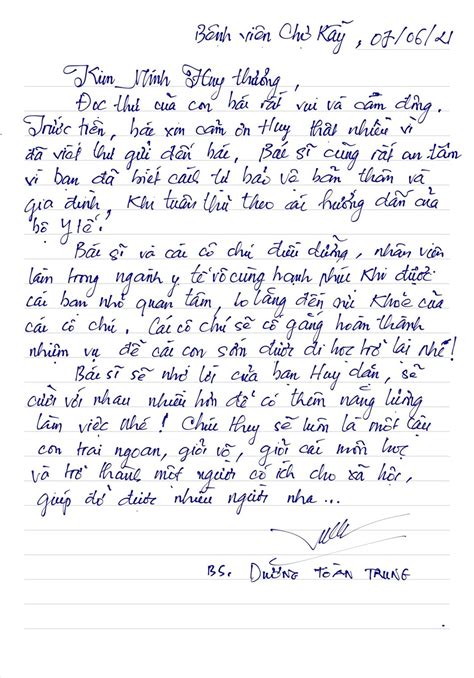 Bệnh viện Chợ Rẫy, 07/06/21
Kim Minh Huy thương,
Đọc thư của con bác rất vui và cảm động.
Trước tiên, bác xin cảm ơn Huy thật nhiều vì
đã viết thư gửi đến bác, Bác sĩ cũng rất an tâm
vì bạn đã biết cách tự bảo vệ bản thân và
gia đình, khi tuân thủ theo các hướng dẫn của
bộ Y tế.
Bác sĩ và các cô chú điều dưỡng, nhân viên
làm trong ngành y tế vô cùng hạnh phúc khi được
các bạn nhỏ quan tâm, lo lắng đến sức khỏe của
các cô chú. Các cô chú sẽ cố gắng hoàn thành
nhiệm vụ để các con sớm được đi học trở lại nhé!
Bác sĩ sẽ nhớ lời của bạn Huy dặn, sẽ
cười với nhau nhiều hơn để có thêm năng lượng
làm việc nhé! Chúc Huy sẽ luôn là một cậu
con trai ngoan, giỏi võ, giỏi các môn học
và trở thành một người có ích cho xã hội,
giúp đỡ được nhiều người nha...
BS. DƯƠNG TOÀN TRUNG